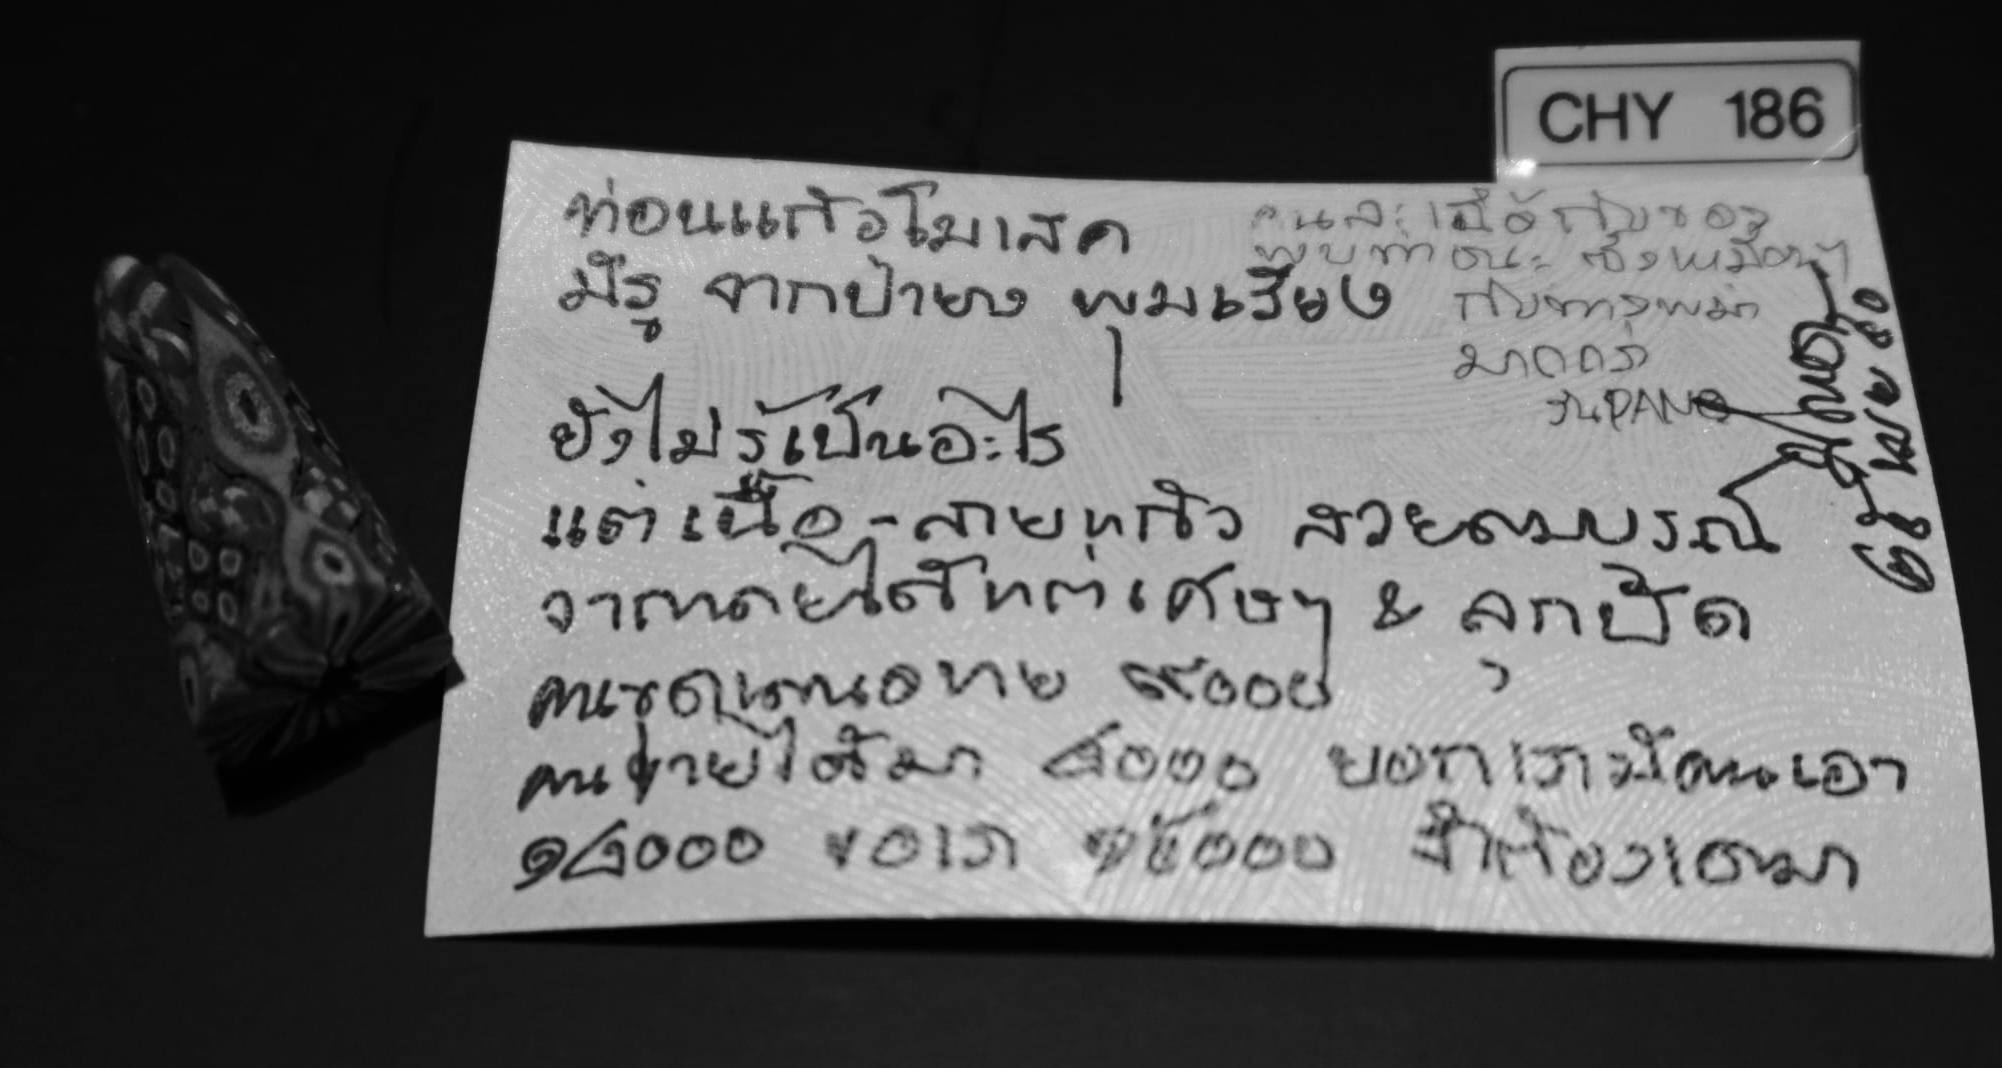 CHY 186
ท่อนแก้วโมเสค
มีรู จากป่ายาง พุมเรียง
คนละเนื้อกับของ
พบท่าชนะ ซึ่งเหมือนๆ
กับทางพม่า
มากกว่า
ยังไม่รู้เป็นอะไร
แต่เนื้อ-ลายแก้ว สวยสมบูรณ์
ได้แต่เศษๆ & ลูกปัด
คนขุดเสนอขาย ๙๐๐๐
คนขายได้มา ๘๐๐๐ บอกเรามีคนเอา
๑๘๐๐๐ ขอเรา ๑๕๐๐๐ จำต้องเอามา